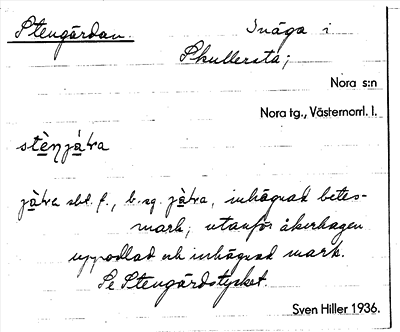 Stengärdan. Inäga i
Skullersta;
Nora s:n
Nora tg., Västernorrl. l.
stènjára
jàra sbst. f., b. sg. jára, inhägnad betes-
mark; utanför åkerhagen
uppodlad och inhägnad mark.
Se Stengärdstycket.
Sven Hiller 1936.